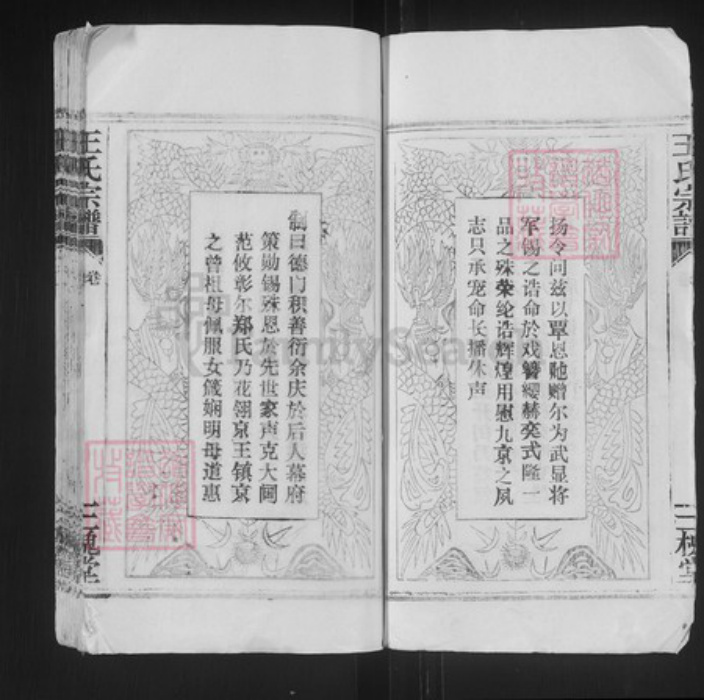 扬令问兹以覃恩貤赠尔为武显将
军锡之诰命於戏簪缨赫奕式隆一
品之殊荣纶诰辉煌用慰九京之夙
志只承宠命长播休声
制曰德门积善衍余庆於后人幕府
策勋锡殊恩於先世家声克大阃
范攸彰尔郑氏乃花翎京王镇京
之曾祖母佩服女箴娴明母道惠
王氏宗谱
卷
三槐堂
王氏宗谱
三槐堂
FamilySearch